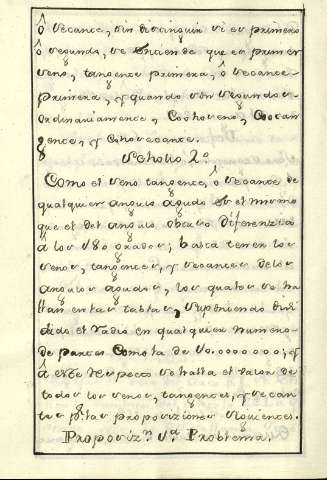 ô secante, sin distinguir si es primero
ô segundo, se entiende que es primer
seno, tangente primera, ô secante
primera, y quando son segundos
ordinariamente, Cosseno, Cotan
gente, y Cosecante.
Scholio 2º
Como el seno tangente, ô secante de
qualquier angulo agudo es el mismo
que el del angulo obtuso diferenzia
â los 180 grados; basta tener los
senos, tangentes, y secantes de los
angulos agudos, los quales se ha
llan en las tablas, suponiendo divi
dido el radio en qualquier numero
de partes como la de 10.0000000; y
â este respecto se halla el valor de
todos los senos, tangentes, y secan
tes p.r las propoviziones siguientes.
Propoviz.n 1.a Problema.